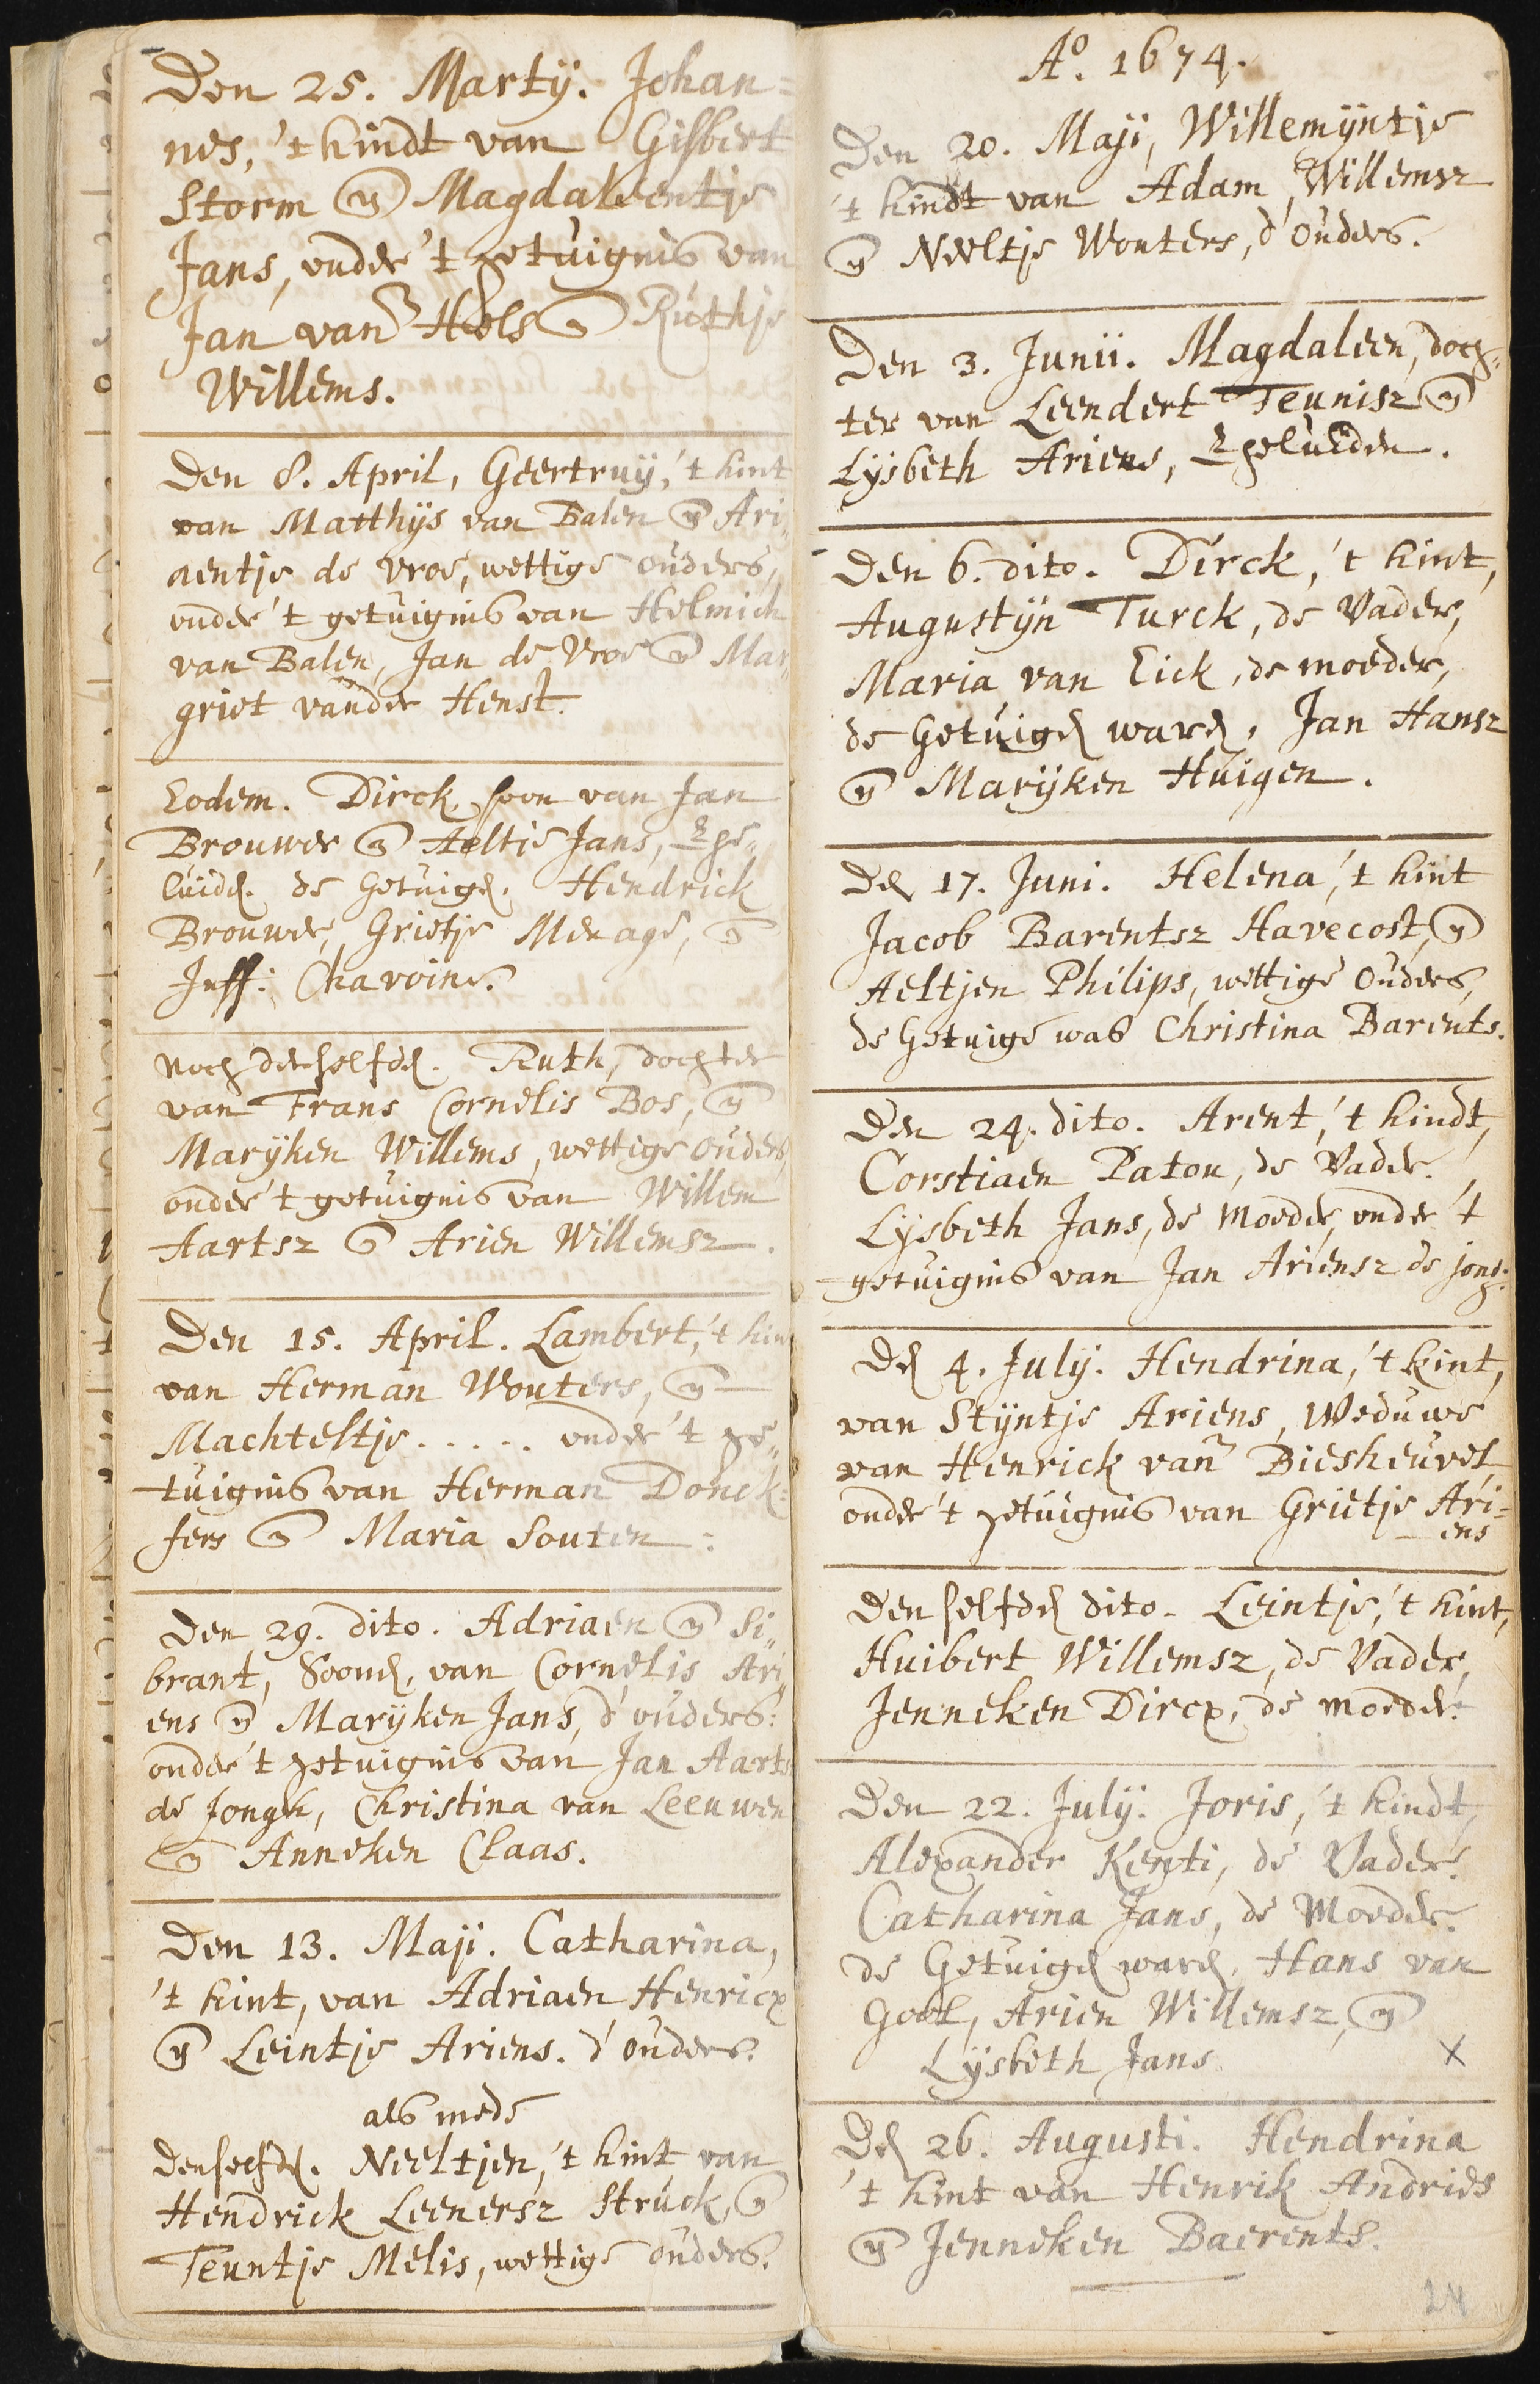 Den 25. Martÿ. Johan=
nes, 't kindt van Gisbert
Storm en Magdaleentje
Jans, onder 't getuignis van
Jan van Hels en Ruthje
Willems.
Den 8. April, Geertruÿ, 't kint
van Matthÿs van Balen en Ari„
aentje de Vroe, wettige ouders,
onder 't getuignis van Helmich
van Balen, Jan de Vroe en Mar„
griet vander Henst.
Eodem. Dirck, soon van Jan
Brouwer en Aeltie Jans, Ege„
luiden. de Getuigen. Hendrick
Brouwer, Grietje Menage, en
Juff: Chavoine.
Noch denselfden. Ruth, dochter
van Frans Cornelis Bos, en
Marÿken Willems, wettige ouders,
onder 't getuignis van Willem
Aartsz en Arien Willemsz.
Den 15. April. Lambert, 't kin
van Herman Wouters, en
Machteltje ..... onder 't ge„
tuignis van Herman Donck=
fers en Maria Souten:
Den 29. dito. Adriaen en Si„
brant, Soonen, van Cornelis Ari„
ens en Marÿken Jans, d'ouders:
onder 't getuignis van Jan Aarts
de Jongh, Christina van Leeuwen
en Anneken Claas.
Den 13. Maji. Catharina,
't kint, van Adriaen Henricx
en Leintje Ariens. d'ouders.
als mede
denselfden. Neeltjen, 't kint van
Hendrick Leenersz Struck, en
Teuntje Melis, wettige ouders.
A°. 1674.
Den 20. Maji, Willemÿntje
't kindt van Adam Willemsz
en Neeltje Wouters, d'ouders.
Den 3. Junii. Magdaleen, doch„
ter van Leendert Teunisz en
Lÿsbeth Ariens, Egeluiden.
Den 6. dito. Dirck, 't kint,
Augustÿn Turck, de Vader,
Maria van Eick, de moeder,
de Getuigen waren, Jan Hansz
en Marÿken Huigen.
Den 17. Juni. Helena, 't kint
Jacob Barentsz Havecost, en
Aeltjen Philips, wettige Ouders,
de Getuige was Christina Barents.
Den 24. dito. Arent, 't kindt,
Corstiaen Paton, de Vader.
Lÿsbeth Jans, de Moeder, onder 't
getuignis van Jan Ariensz de jong:
Den 4. Julÿ. Hendrina, 't kint,
van Stÿntje Ariens, Weduwe
van Henrick van Biesheuvel
onder 't getuignis van Grietje Ari=
ens
Den selfden dito. Leintje, 't kint,
Huibert Willemsz, de Vader,
Jenneken Dircx, de moeder.
Den 22. Julÿ. Joris, 't kindt,
Alexander Kenti, de Vader.
Catharina Jans, de Moeder.
de Getuigen waren, Hans van
Gool, Arien Willemsz, en
Lÿsbeth Jans. X
Den 26. Augusti. Hendrina
't kint van Henrik Andries
en Jenneken Baerents.
24